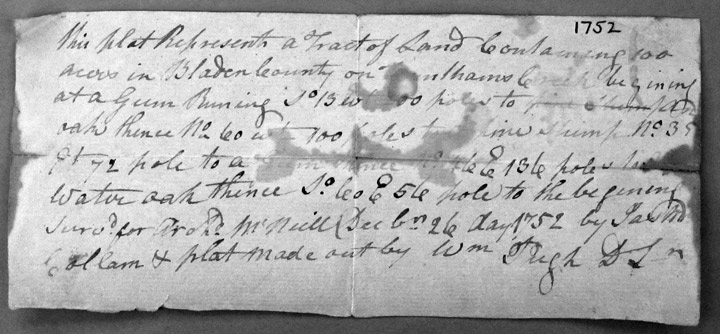 1752
this plat Represents a Tract of Land Containing 100
acres in Bladen County on Creek begining
at a Gum Runing So 13 Wt poles to
oak thence No 60 Wt 100 poles to pine Stump No 35
Et 72 pole to a E 136 poles
Water oak thence So 60 E 56 pole to the begening
Survd for Archd McNeill Decbr 26 day 1752 by Jas
Collam & plat made out by Wm Pugh D S